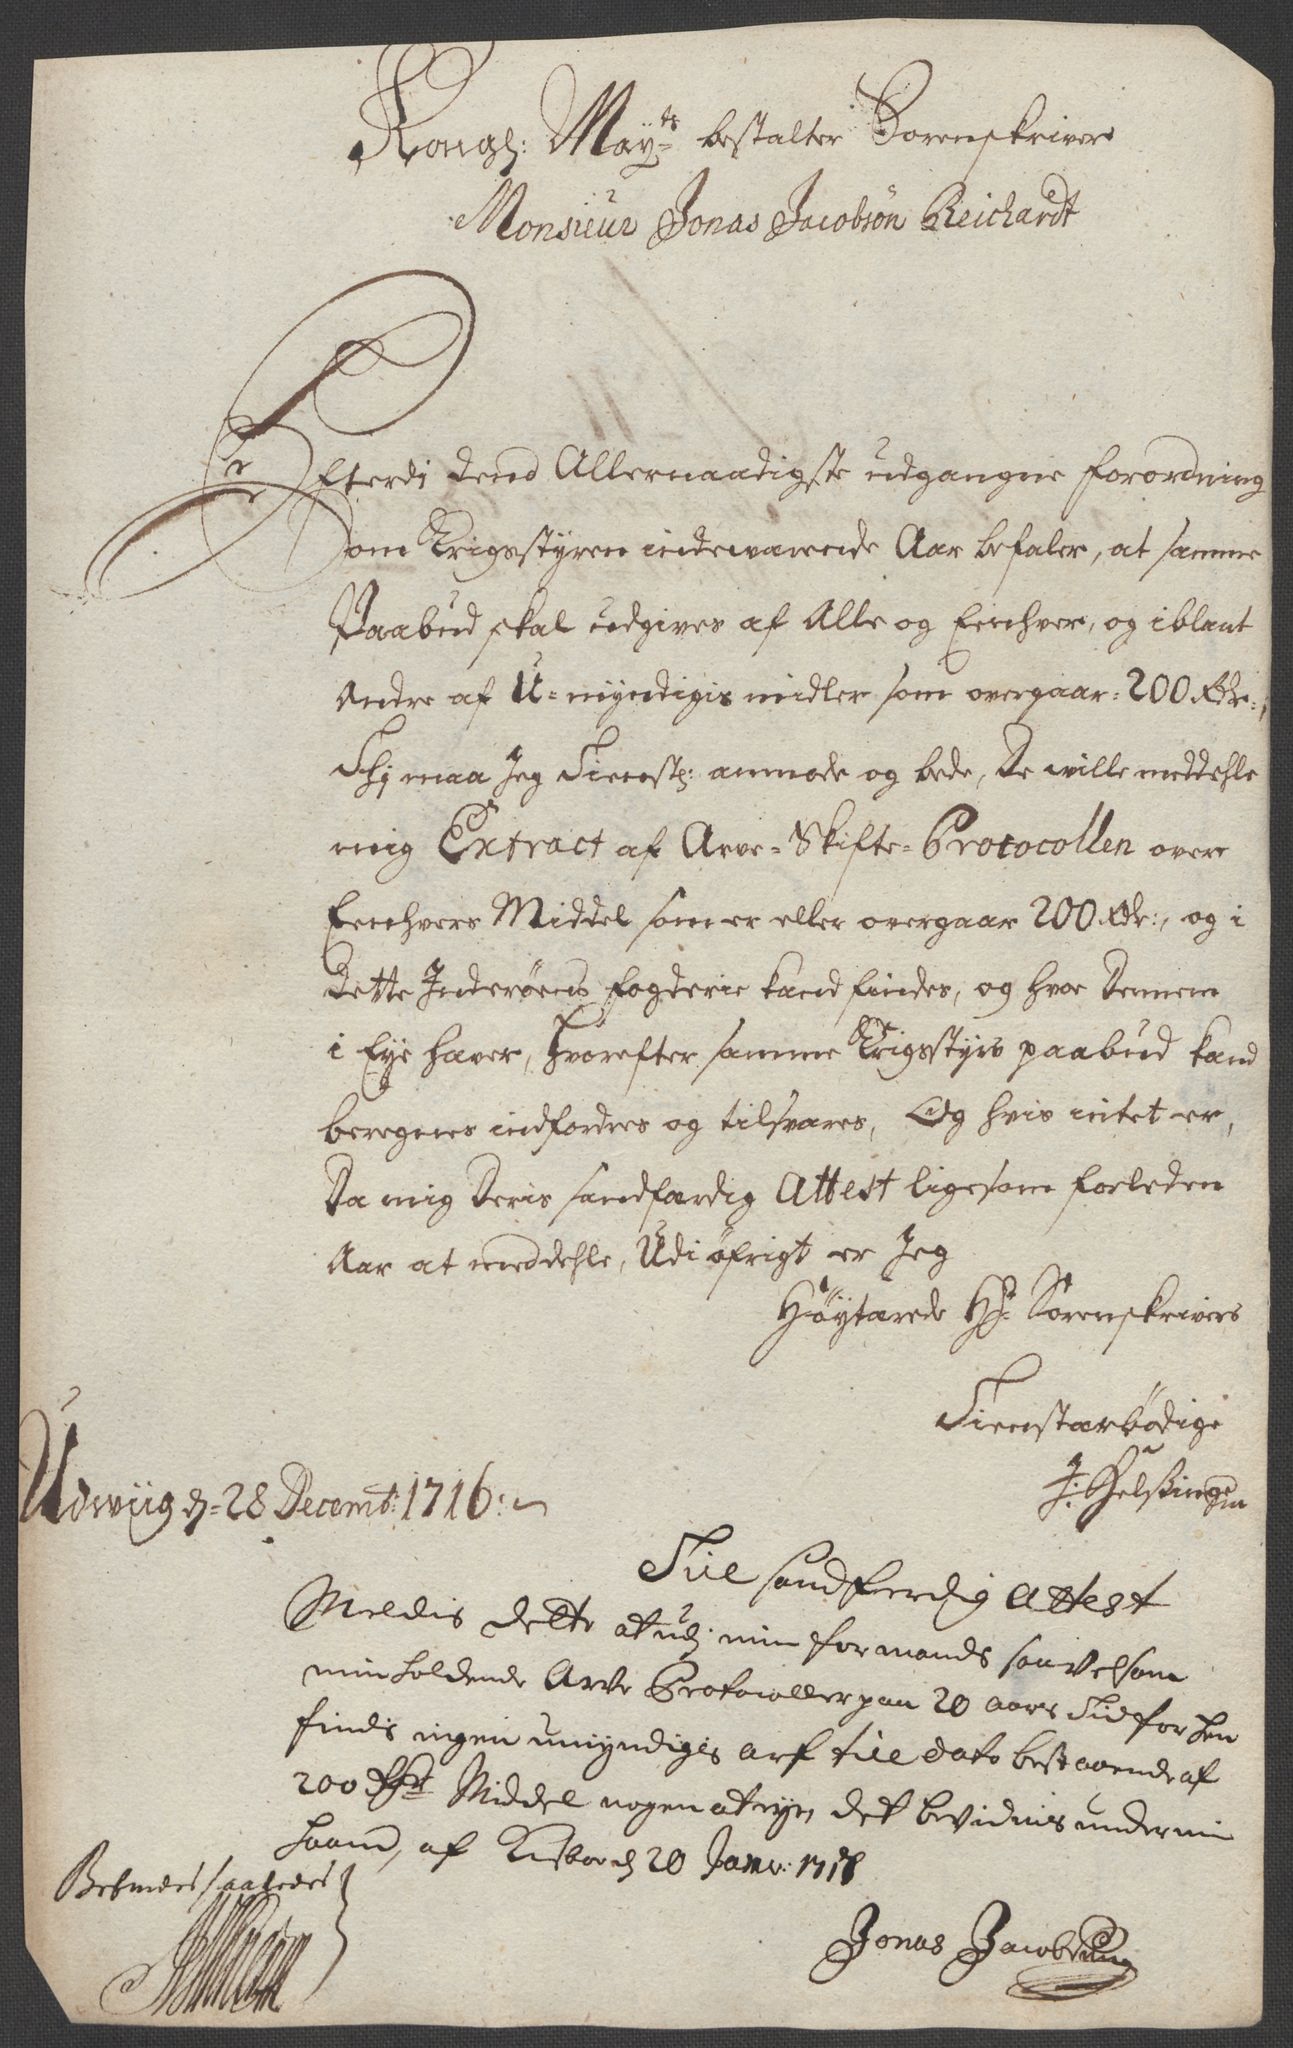 Kongl: May:ts bestalter Sorenskriver
Monsieur Jonas Jacobsøn Reichardt
Efterdj dend Allernaadigste udgangne forordning
om Krigsstyren indeværende Aar befaler, at samme
Paabud skal udgives af Alle og Eenhver, og iblant
Andre af U-myndigis midler som overgaar: 200 Rdr:,
Thj maa Jeg Tienstl: anmode og bede, De wille meddehle
mig Extract af Arve-Skifte-Protocollen over
Eenhvers Middel som er eller overgaar 200 Rdr:, og i
dette Inderøens fogderie kand findes, og hvor dennem
i Eye haver, hvorefter samme Krigsstyrs paabud kand
beregnes indfordres og tilsvares, Og hvis intet er,
Da mig deris sandfærdig Attest ligesom forleden
Aar at meddehle, Udi øfrigt er Jeg
Høytærede Hr: Sorenskrivers
Tienstærbødige
J: Helsing
Udwiig d: 28 Decemb: 1716:
Till sandferdig Attest
Meldis dette at udj min formands saavelsom
min holdende Arve Protocoller paa 20 aars Tid for hen
findis ingen umyndigis arf till dato bestaaende af
200 Rdr Middel nogen at eye, det bevidnis under min
haand, af d 20 Janv: 171
Bekiendes saaledes
Jonas Jacobsøn